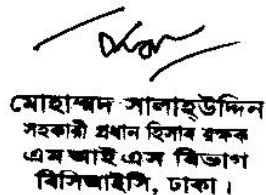 মোহাম্মদ সালাহ্উদ্দিন
সহকারী প্রধান হিসাব রক্ষক
এমআইএস বিভাগ
বিসিআইসি, ঢাকা।